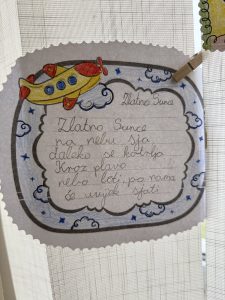 Zlatno Sunce
Zlatno Sunce
na nebu sja,
daleko se kotrlja
Kroz plavo
nebo leti, po nama
će uvijek sjati